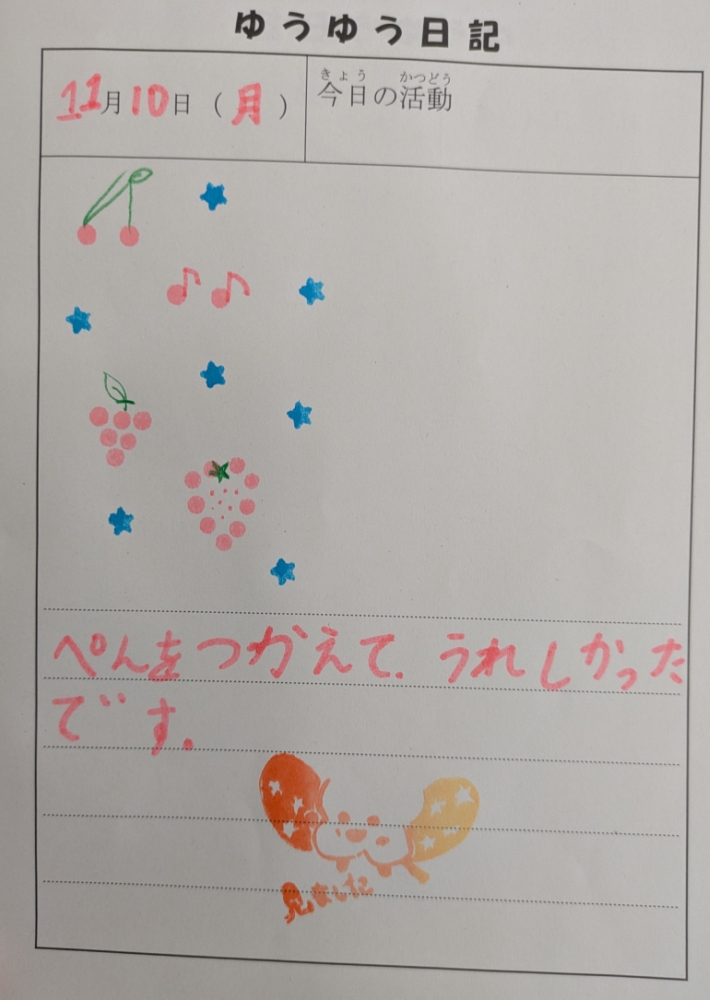 ゆうゆう日記
11月10日(月)
きょう かつどう
今日の活動
ぺんをつかえて.うれしかった
です.
見ました